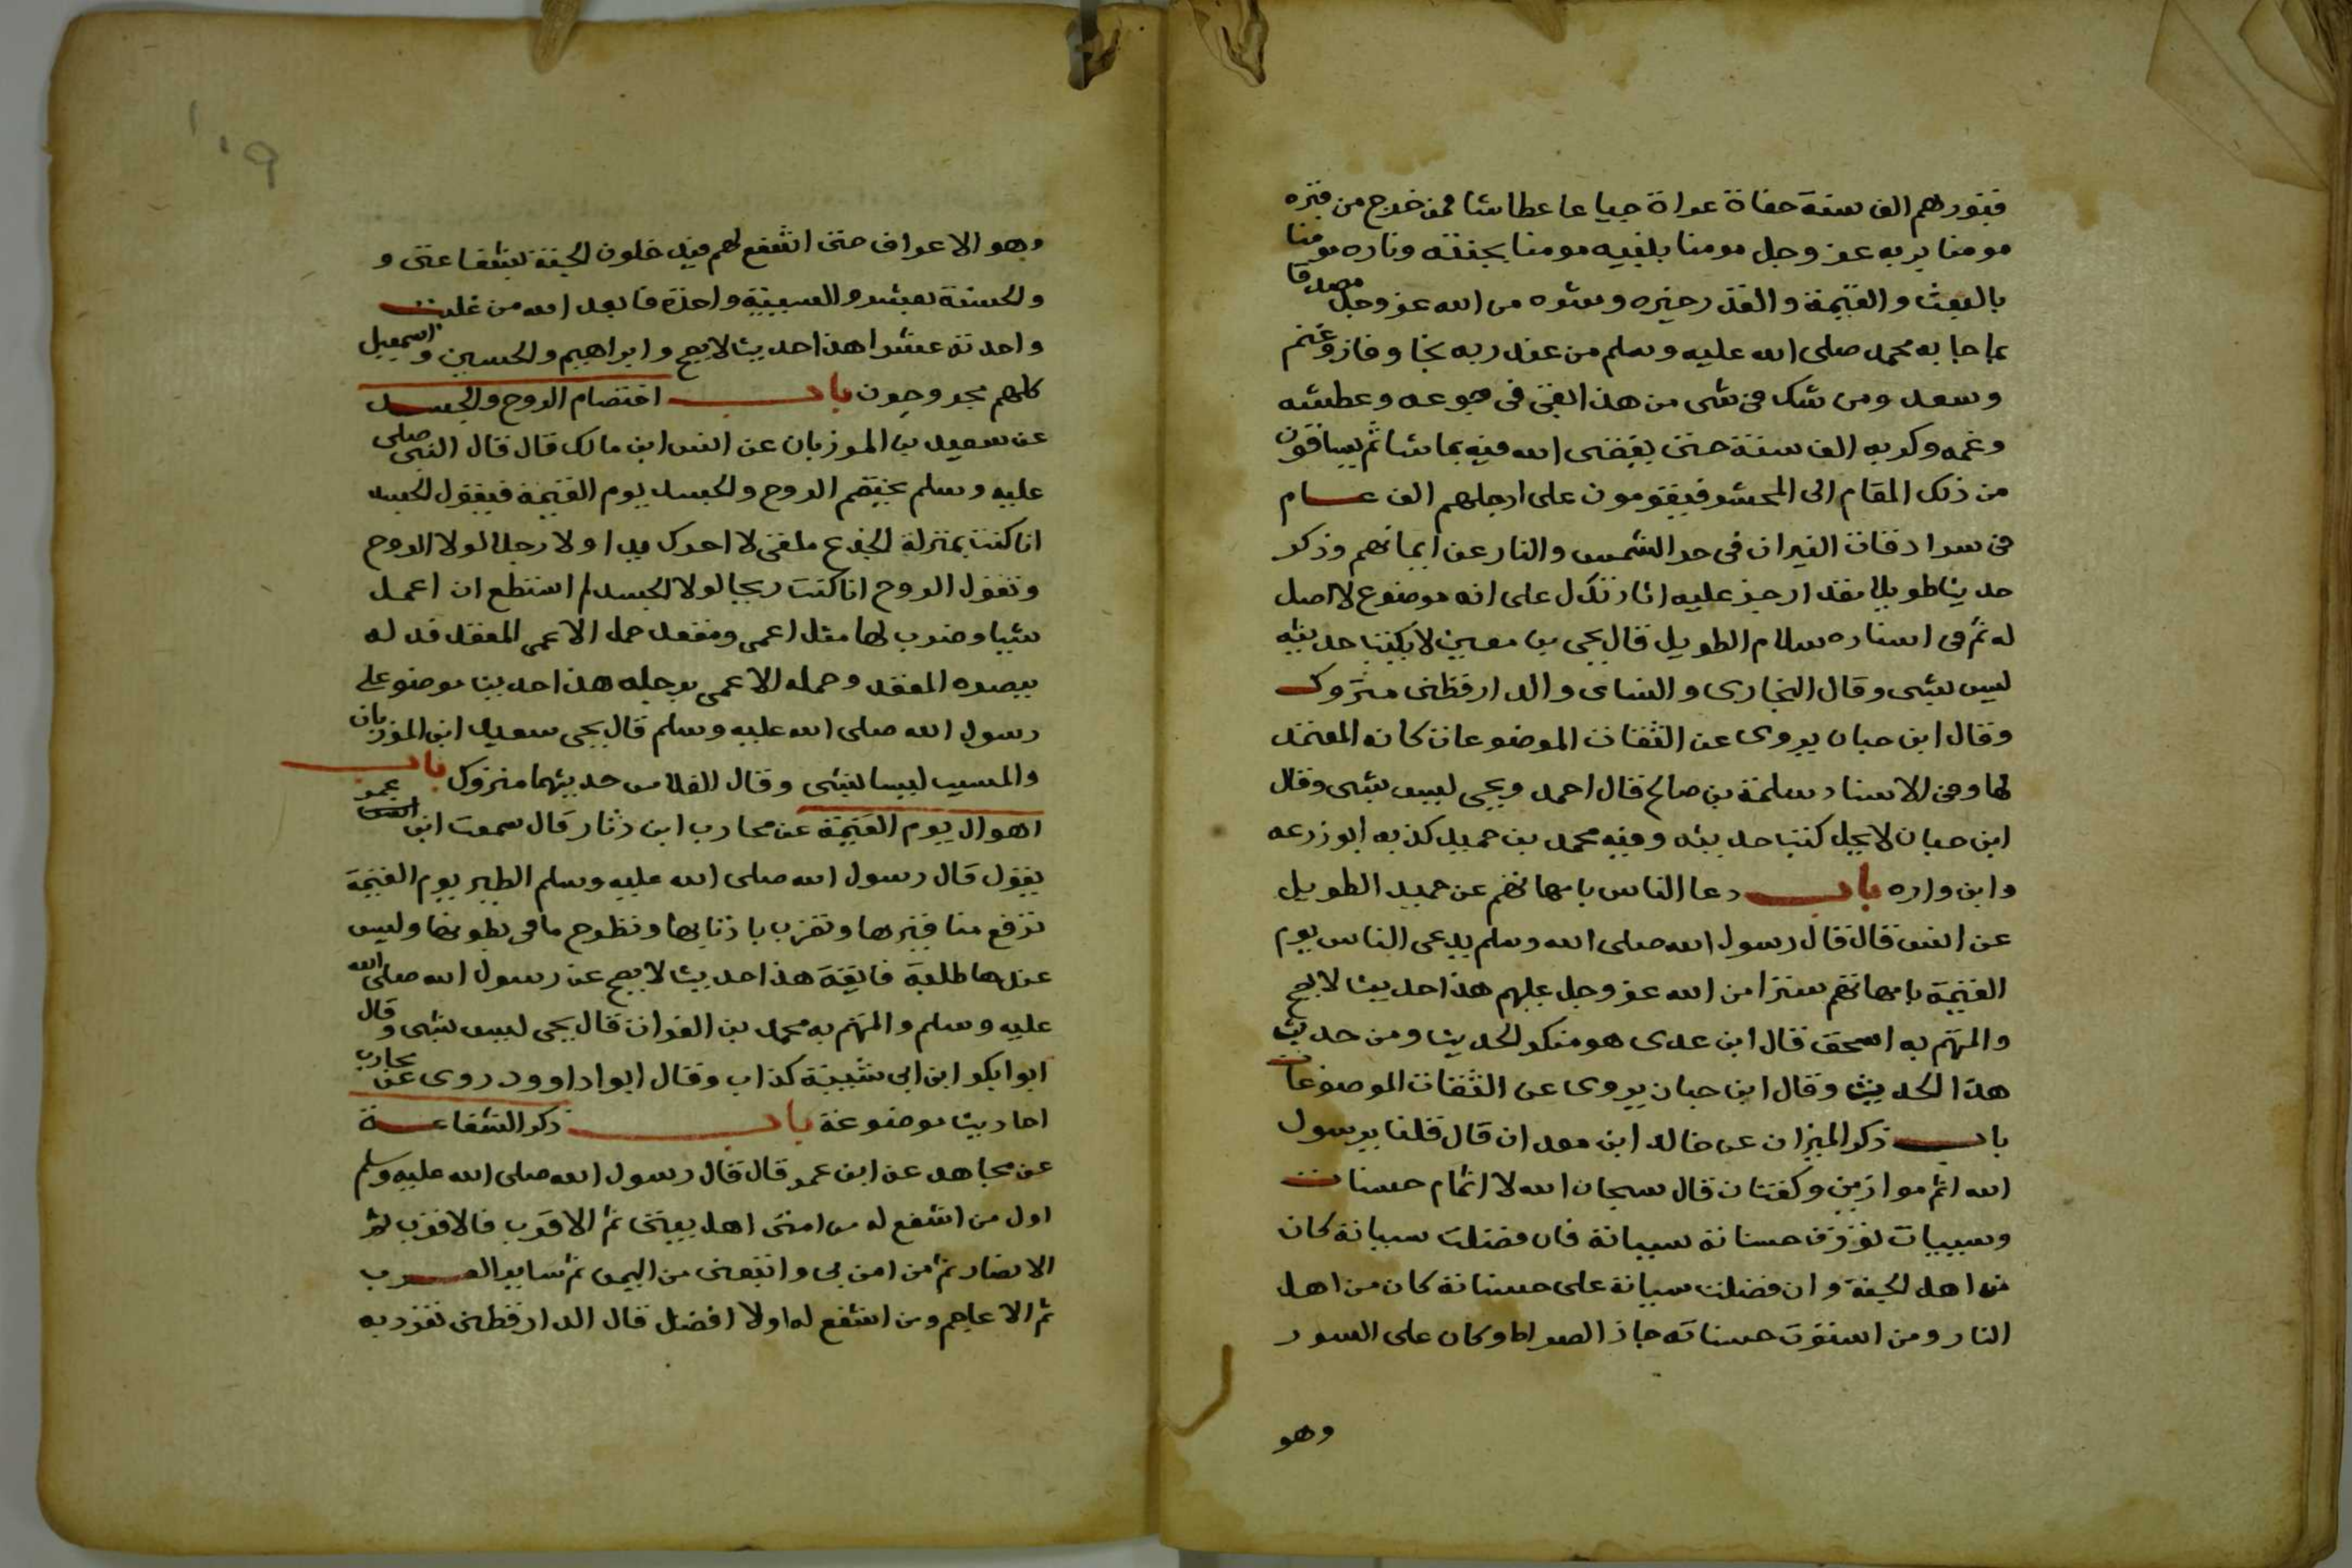 قبورهم الف سنة حفاة عراة جياعا عطاشا فمن خرج من قبره
مومنا بربه عز وجل مومنا بنبيه مومنا بجنته وناره مومنا
بالبعث والقيمة والقدر خيره وشره من الله عز وجل مصدقا
بما جا به محمد صلى الله عليه وسلم من عند ربه نجا وفاز وغنم
وسعد ومن شك فى شى من هذا بقى فى جوعه وعطشه
وغمه وكربه الف سنة حتى يقضى الله فيه بما شا ثم يساقون
من ذلك المقام الى المحشر فيقومون على ارجلهم الف عام
فى سرادقات النيران فى حر الشمس والنار عن ايمانهم وذكر
حديثا طويلا عليه اثار تدل على انه موضوع لا اصل
له ثم فى اسناده سلام الطويل قال يحى بن معين لا يكتب حديثه
ليس بشى وقال البخارى والنساى والدارقطنى متروك
وقال ابن حبان يروى عن الثقات الموضوعات كانه المعتمد
لها وفى الاسناد سلمة بن صالح قال احمد ويحى ليس بشى وقال
ابن حبان لا يحل كتب حديثه وفيه محمد بن حميد كذبه ابو زرعه
وابن واره باب دعا الناس بامهاتهم عن حميد الطويل
عن انس قال قال رسول الله صلى الله وسلم يدعى الناس يوم
القيمة بامهاتهم سترا من الله عز وجل عليهم هذا حديث لا يصح
والمتهم به اسحق قال ابن عدى هو منكر الحديث ومن حديثه
هذا الحديث وقال ابن حبان يروى عن الثقات الموضوعات
باب ذكر الميزان عن خالد ابن معدان قال قلنا يرسول
الله اثم موازين وكفتان قال سبحان الله لا اثمام حسنات
وسييات توزن حسناته سيياته فان فضلت سيياته كان
من اهل الجنة وان فضلت سيياته على حسناته كان من اهل
النار ومن استوت حسناته جاز الصراط وكان على السور
وهو
وهو الاعراف حتى اشفع لهم فيدخلون الجنة بشفاعتى و
والحسنة بعشر والسيية واحدة فابعد الله من غلبت
واحدته عشرا هذا حديث لا يصح وابراهيم والحسين واسمعيل
كلهم مجروحون باب اختصام الروح والجسد
عن سعيد بن المرزبان عن انس ابن مالك قال قال النبى صلى
عليه وسلم يختصم الروح والجسد يوم القيمة فيقول الجسد
انا كنت بمنزلة الجذع ملقى لا احرك يدا ولا رجلا لولا الروح
وتقول الروح انا كنت ريحا لولا الجسد لم استطع ان اعمل
شيا وضرب لهما مثل اعمى ومقعد حمل الاعمى المقعد فدله
ببصره المقعد وحمله الاعمى برجله هذا حديث موضوع على
رسول الله صلى الله عليه وسلم قال يحى سعيد ابن المرزبان
والمسيب ليسا بشى وقال الفلاس حديثهما متروك باب
اهوال يوم القيمة عن محارب ابن دثار قال سمعت ابن عمر
يقول قال رسول الله صلى الله عليه وسلم الطير يوم القيمة
ترفع مناقيرها وتضرب باذنابها وتطرح ما فى بطونها وليس
عندها طلبة فاتقه هذا حديث لا يصح عن رسول الله صلى الله
عليه وسلم والمتهم به محمد بن الفرات قال يحى ليس بشى وقال
ابوا بكر ابن ابى شيبة كذاب وقال ابوا داوود روى عن محارب
احاديث موضوعة باب ذكر الشفاعة
عن مجاهد عن ابن عمر قال قال رسول الله صلى الله عليه وسلم
اول من اشفع له من امتى اهل بيتى ثم الاقرب فالاقرب ثم
الانصار ثم من امن بى واتبعنى من اليمن ثم ساير العرب
ثم الاعاجم ومن اشفع له اولا افضل قال الدارقطنى تفرد به